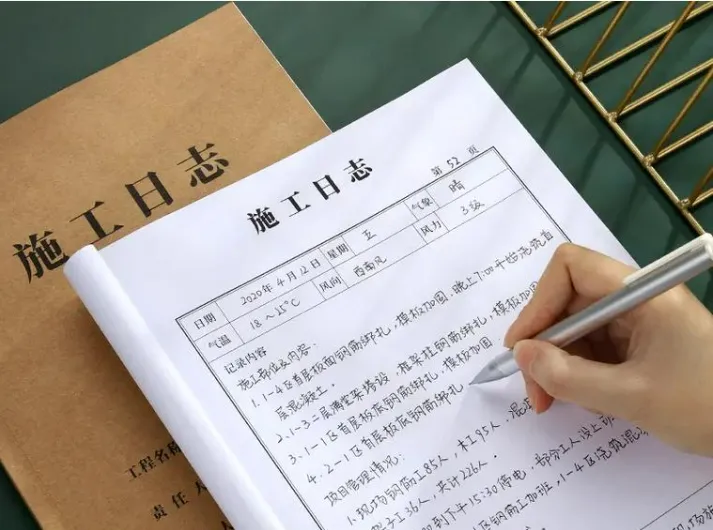 施工日志
工程名称
责任人
施工日志
第 52 页
日期 2020年4月12日 星期 五 气象 晴
气温 18~25℃ 风向 西南风 风力 3级
记录内容
施工部位及内容:
1.1-4区首层板面钢筋绑扎,模板加固,晚上7:00开始浇筑首
层混凝土.
2.1-3二层满堂架搭设 框架柱钢筋绑扎,模板加固
3.1-1区首层板底钢筋绑扎,模板加固
4.2-1区首层板底钢筋绑扎
项目管理情况:
1.现场钢筋工85人,木工95人,混
子工36人,共计226人.
到下午15:30停电,部分工人没上
钢筋工加班,1-4区浇筑混